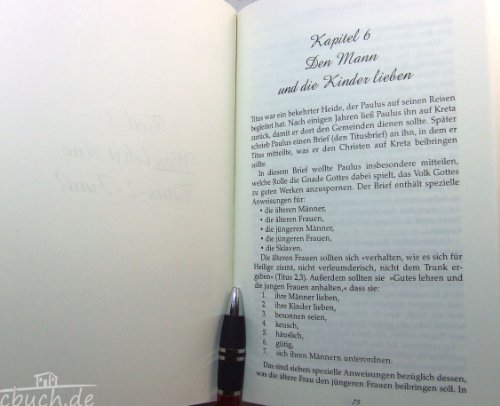 Kapitel 6
Den Mann
und die Kinder lieben
Titus war ein bekehrter Heide, der Paulus auf seinen Reisen
begleitet hat. Nach einigen Jahren ließ Paulus ihn auf Kreta
zurück, damit er dort den Gemeinden dienen sollte. Später
schrieb Paulus einen Brief (den Titusbrief) an ihn, in dem er
Titus mitteilte, was er den Christen auf Kreta beibringen
sollte.
In diesem Brief wollte Paulus insbesondere mitteilen,
welche Rolle die Gnade Gottes dabei spielt, das Volk Gottes
zu guten Werken anzuspornen. Der Brief enthält spezielle
Anweisungen für:
• die älteren Männer,
• die älteren Frauen,
• die jüngeren Männer,
• die jüngeren Frauen,
• die Sklaven.
Die älteren Frauen sollten sich »verhalten, wie es sich für
Heilige ziemt, nicht verleumderisch, nicht dem Trunk er-
geben« (Titus 2,3). Außerdem sollten sie »Gutes lehren und
die jungen Frauen anhalten,« dass sie:
1. ihre Männer lieben,
2. ihre Kinder lieben,
3. besonnen seien,
4. keusch,
5. häuslich,
6. gütig,
7. sich ihren Männern unterordnen.
Das sind sieben spezielle Anweisungen bezüglich dessen,
was die ältere Frau den jüngeren Frauen beibringen soll. In
75
cbuch.de